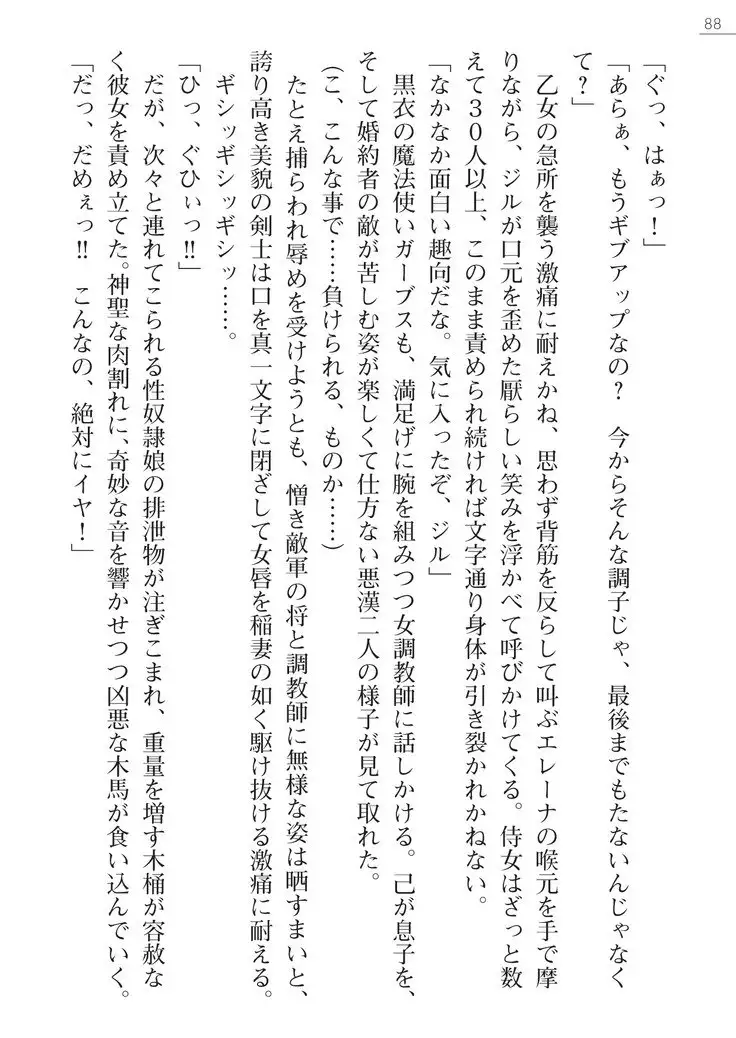 88
「ぐっ、はぁっ！」
「あらぁ、もうギブアップなの？　今からそんな調子じゃ、最後までもたないんじゃなく
て？」
　乙女の急所を襲う激痛に耐えかね、思わず背筋を反らして叫ぶエレーナの喉元を手で摩
りながら、ジルが口元を歪めた厭らしい笑みを浮かべて呼びかけてくる。侍女はざっと数
えて３０人以上、このまま責められ続ければ文字通り身体が引き裂かれかねない。
「なかなか面白い趣向だな。気に入ったぞ、ジル」
　黒衣の魔法使いガーブスも、満足げに腕を組みつつ女調教師に話しかける。己が息子を、
そして婚約者の敵が苦しむ姿が楽しくて仕方ない悪漢二人の様子が見て取れた。
（こ、こんな事で……負けられる、ものか……）
　たとえ捕らわれ辱めを受けようとも、憎き敵軍の将と調教師に無様な姿は晒すまいと、
誇り高き美貌の剣士は口を真一文字に閉ざして女唇を稲妻の如く駆け抜ける激痛に耐える。
　ギシッギシッギシッ……。
「ひっ、ぐひぃっ!!」
　だが、次々と連れてこられる性奴隷娘の排泄物が注ぎこまれ、重量を増す木桶が容赦な
く彼女を責め立てた。神聖な肉割れに、奇妙な音を響かせつつ凶悪な木馬が食い込んでいく。
「だっ、だめぇっ!!　こんなの、絶対にイヤ！」